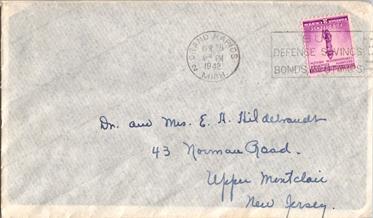 GRAND RAPIDS
PM
1942
MICH.
DEFENSE SAVINGS
BONDS
Dr. and Mrs. E. H. Hildebrandt
43 Norman Road.
Upper Montclair
New Jersey.